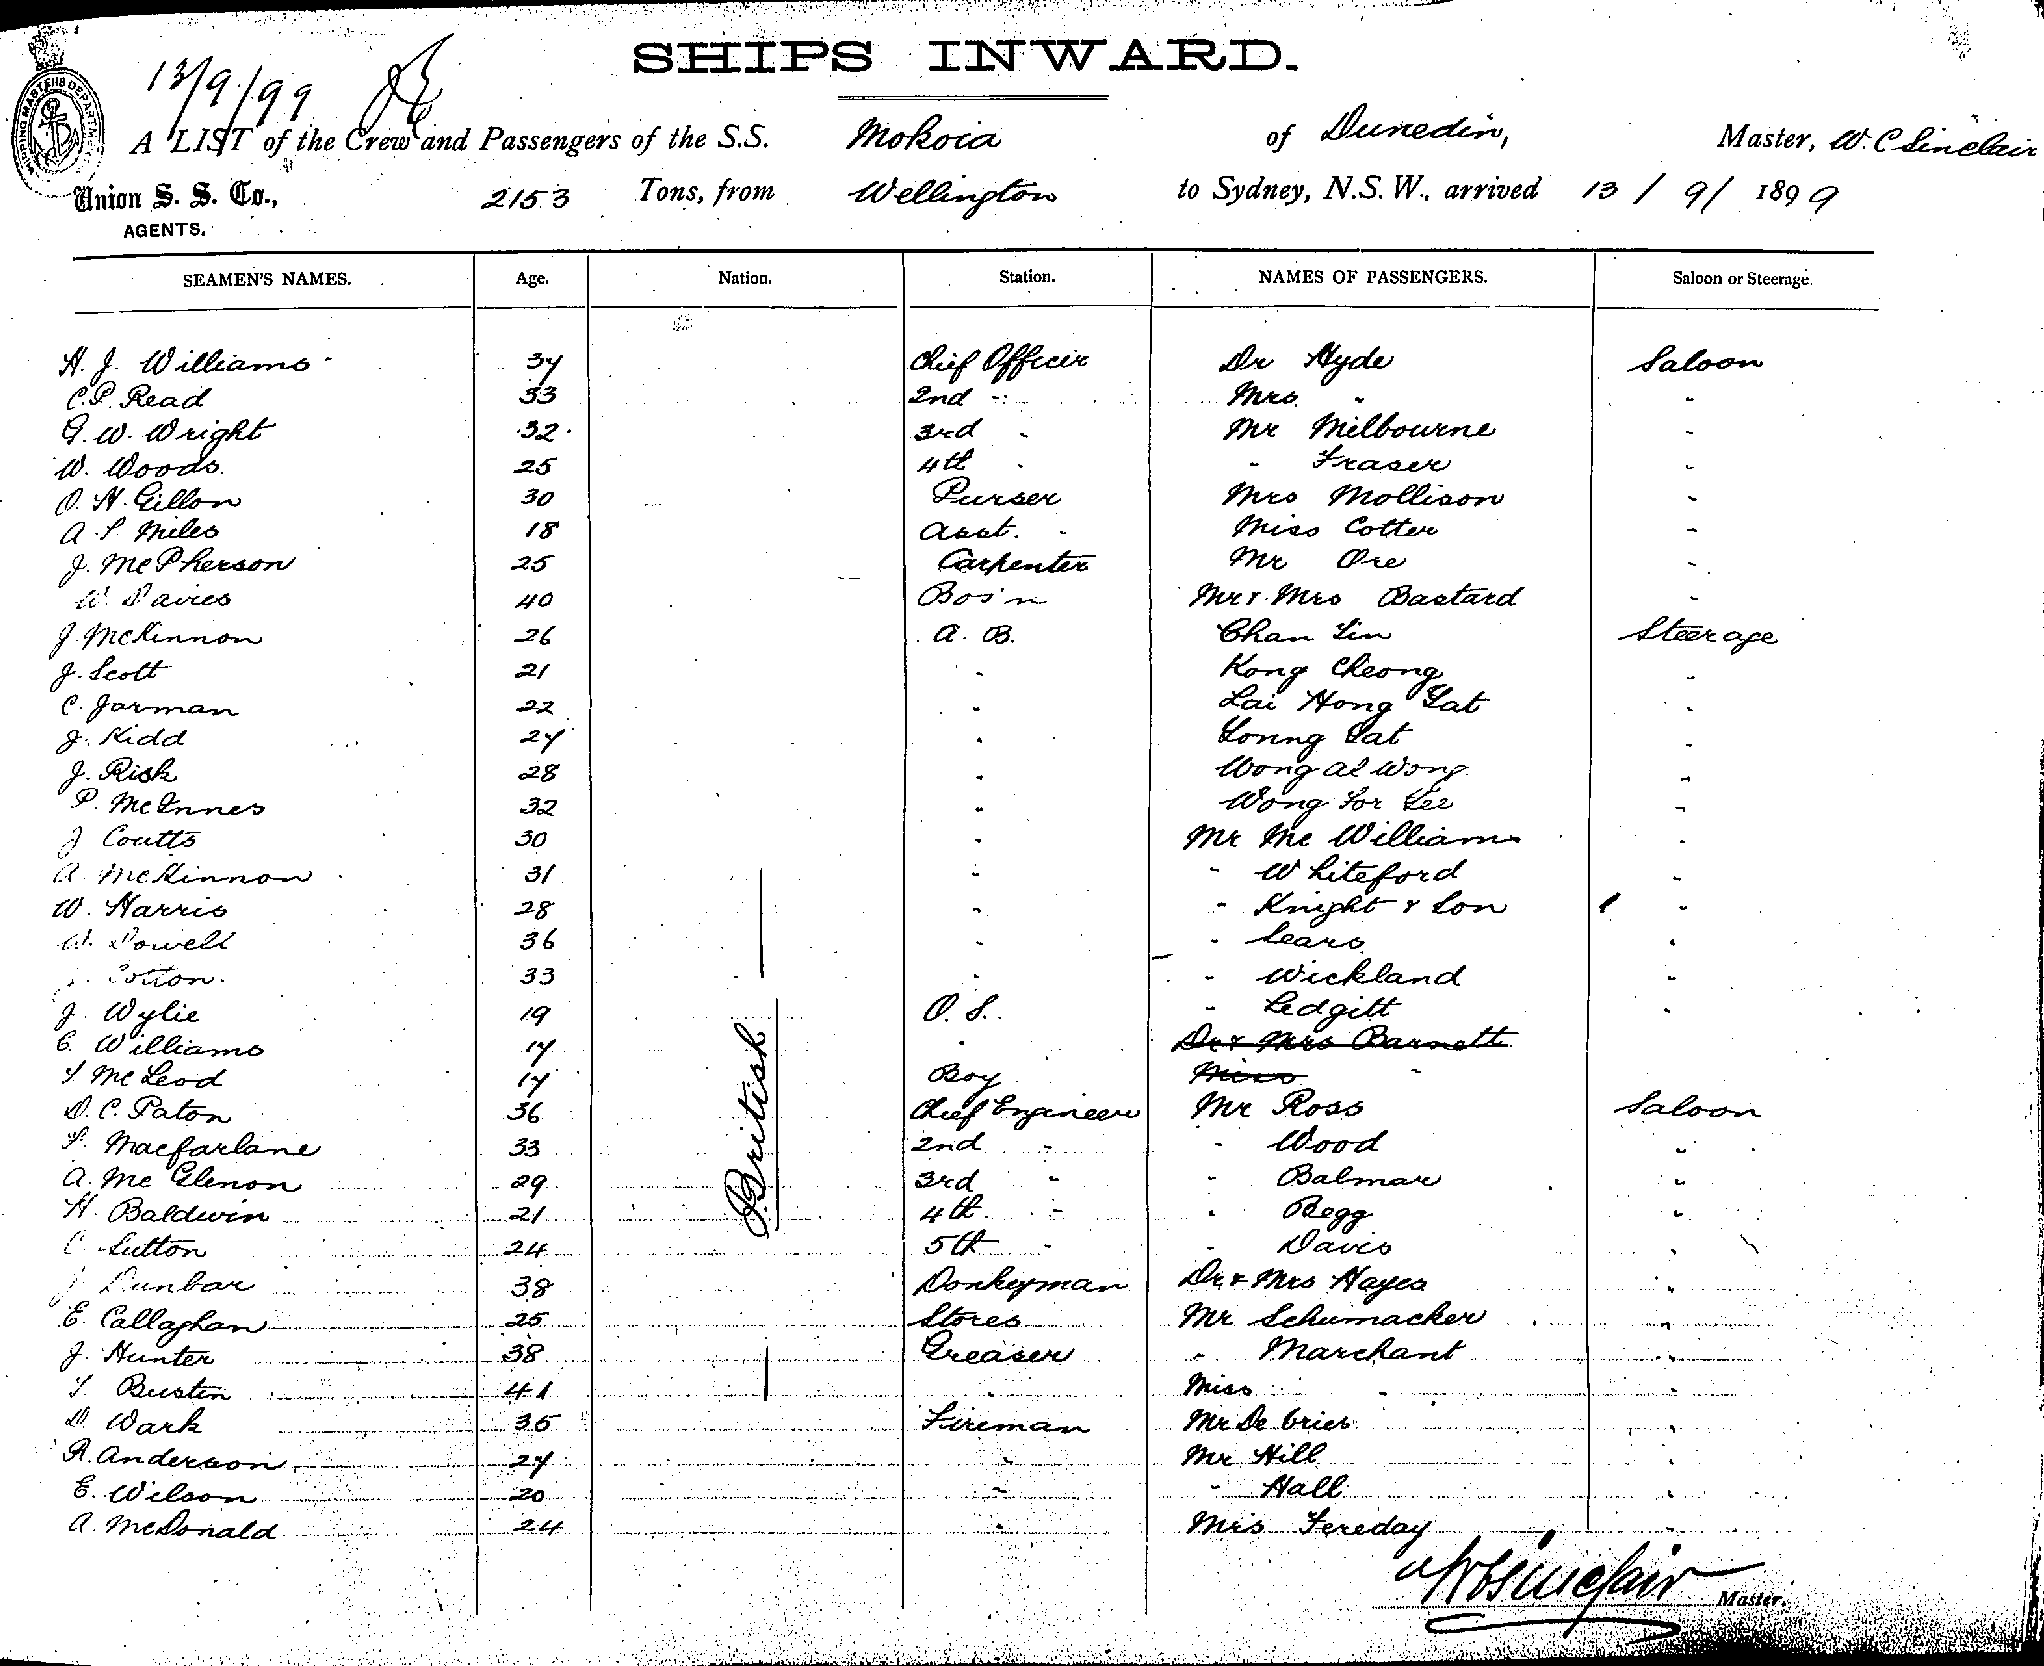 SHIPS INWARD.
13/9/99
A LIST of the Crew and Passengers of the S.S. Mokoia of Dunedin, Master, W. C Sinclair
Union S. S. Co., 2153 Tons, from Wellington to Sydney, N.S.W., arrived 13 / 9 / 1899
AGENTS.
SEAMEN'S NAMES. Age. Nation. Station. NAMES OF PASSENGERS. Saloon or Steerage.
H. J. Williams 34 Chief Officer Dr Hyde Saloon
C. P. Read 33 2nd " Mrs. " "
G. W. Wright 32 3rd " Mr Milbourne "
W. Woods 25 4th " " Fraser "
O. H. Gillon 30 Purser Mrs Mollison "
A. S Miles 18 Asst. " Miss Cotter "
J. McPherson 25 Carpenter Mr Ore "
W. Davies 40 Bos'n Mr & Mrs Bastard "
J. McKinnon 26 A. B. Chan Lin Steerage
J. Scott 21 " Kong Cheong "
C. Jarman 22 " Lai Hong Yat "
J. Kidd 24 " Yat "
J. Risk 28 " Wong Wong "
P. McInnes 32 " Wong For Lee "
J Coutts 30 " Mr McWilliams "
A. McKinnon 31 " " Whiteford "
W. Harris 28 " " Knight & Son "
W. Dowell 36 " " Sears "
Cotton. 33 " " Wickland "
J. Wylie 19 O. S. " Ledgitt "
C. Williams 17 " Dr & Mrs Barnett
T McLeod 17 Boy Miss "
D. C. Paton 36 Chief Engineer Mr Ross Saloon
T. Macfarlane 33 2nd " " Wood "
A. McGlenon 29 3rd " " Balmar "
H. Baldwin 21 4th " " Begg "
C Sutton 24 5th " " Davis "
J Dunbar 38 Donkeyman Dr & Mrs Hayes "
E. Callaghan 25 Stores Mr Schumacker "
J. Hunter 38 Greaser " Marchant "
T. Bustin 41 " Miss " "
D. Wark 35 Fireman Mr De "
R. Anderson 24 " Mr Hill "
E. Wilson 20 " " Hall "
A. McDonald 24 " Mrs Fereday "
British
W C Sinclair Master.